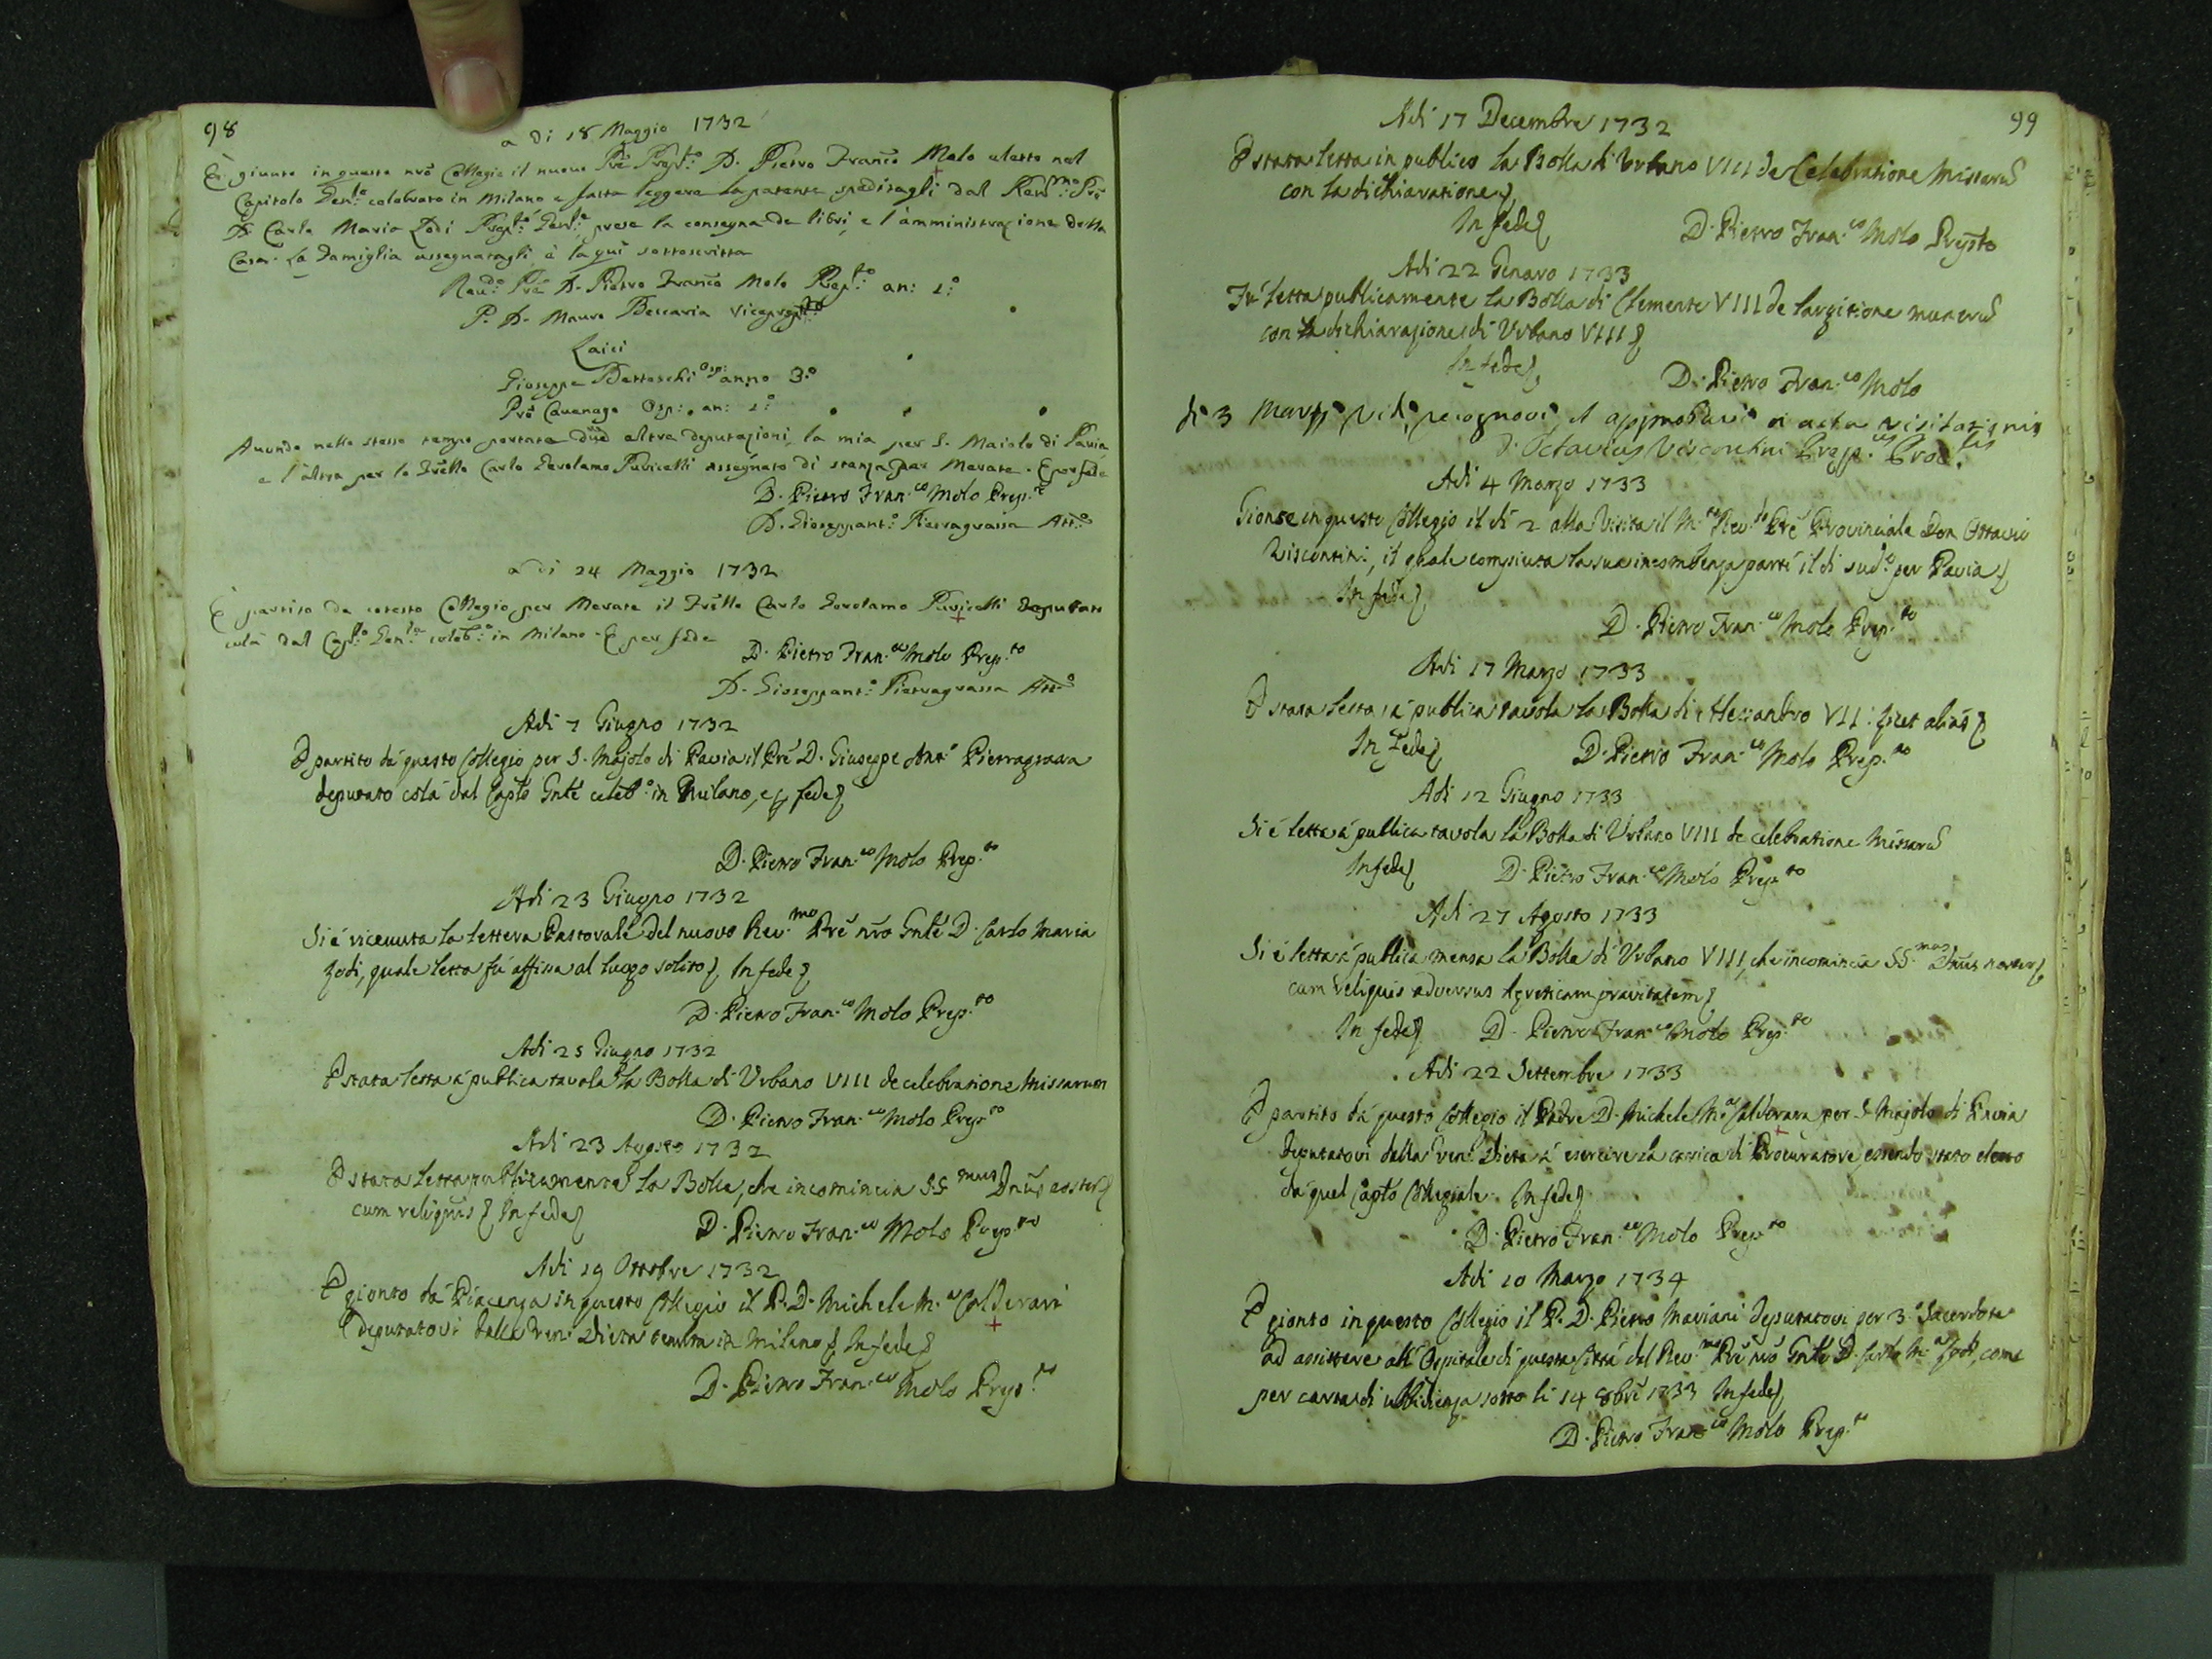 98
a di 18 Maggio 1732
È giunto in questo nrõ Collegio il nuovo Prẽ Prep.to D. Pietro Franc̃o Molo eletto nel
Capitolo Gen.le celebrato in Milano e fatta leggere la patente speditagli dal Rev.mo Prẽ
D. Carlo Maria Lodi Prep.to Gen.le, prese la consegna de libri, e l'amministrazione della
Casa. La Famiglia assegnatagli è la quì sottoscritta
Reud.o Prẽ D. Pietro Franc̃o Molo Prep.to an: 1.o
P. D. Mauro Beccaria Viceprep.to
Laici
Gioseppe Bettoschi Osp: anno 3.o
Prõ Cauenago Osp: an: 1.o
Auendo nello stesso tempo portate due altre deputazioni, la mia per S. Maiolo di Pavia
e l'altra per lo Frẽllo Carlo Gerolamo Puricelli assegnato di stanza per Merate. E per fede
D. Pietro Fran.co Molo Prep.to
D. Gioseppant.o Pietragrassa Att.o
a di 24 Maggio 1732
È partito da cotesto Collegio per Merate il Frẽllo Carlo Gerolamo Puricelli deputato
colà dal Cap.lo Gen.le celeb.o in Milano. E per fede
D. Pietro Fran.co Molo Prep.to
D. Gioseppant.o Pietragrassa Att.o
Adi 7 Giugno 1732
È partito dà questo Collegio per S. Majolo di Pavia il Prẽ D. Giuseppe Ant.o Pietragrassa
deputato colà dal Capto Gnlẽ celeb.o in Milano, e p fede
D. Pietro Fran.co Molo Prep.to
Adi 23 Giugno 1732
Si è ricevuta la lettera Pastorale del nuovo Rev.mo Prẽ nrõ Gnlẽ D. Carlo Maria
Lodi, quale letta fù affissa al luogo solito, In fede
D. Pietro Fran.co Molo Prep.to
Adi 25 Giugno 1732
È stata letta à publica tavola la Bolla di Urbano VIII de celebratione Missarum
D. Pietro Fran.co Molo Prep.to
Adi 23 Agosto 1732
È stata letta publicamente la Bolla, che incomincia SS.mus Dnus noster
cum reliquis In fede
D. Pietro Fran.co Molo Prep.to
Adi 19 Ottobre 1732
È gionto dà Piacenza in questo Collegio il P. D. Michele M.a Calderari
deputatovi dalla Ven: Dieta tenuta in Milano, In fede
D. Pietro Fran.co Molo Prep.to
99
Adi 17 Decembre 1732
È stata letta in publico la Bolla di Urbano VIII de Celebratione Missarũ
con la dichiaratione
In fede D. Pietro Fran.co Molo Prepto
Adi 22 Genaro 1733
Fù letta publicamente la Bolla di Clemente VIII de largitione munerũ
con la dichiarazione di Urbano VIII
In fede
D. Pietro Fran.co Molo
di 3 Martji vidi, recognovi, et approbavi in acta visitationis
D. Octavius Viscontini Prep.us Prov.lis
Adi 4 Marzo 1733
Gionse in questo Collegio il dì 2 alla Visita il M.to Rev.do Prẽ Provinciale Don Ottavio
Viscontini, il quale compiuta la sua incombenza partì il dì sud.o per Pavia
In fede
D. Pietro Fran.co Molo Prep.to
Adi 17 Marzo 1733
È stata letta à publica tavola la Bolla di Alessandro VII: licet alias
In Fede D. Pietro Fran.co Molo Prep.to
Adi 12 Giugno 1733
Si è letta à publica tavola la Bolla di Urbano VIII de celebratione Missarũ
In fede D. Pietro Fran.co Molo Prep.to
Adi 27 Agosto 1733
Si è letta à publica mensa la Bolla di Urbano VIII, che incomincia SS.mus Dnus noster
cum reliquis adversus hereticam pravitatem
In fede D. Pietro Fran.co Molo Prep.to
Adi 22 Settembre 1733
È partito dà questo Collegio il Padre D. Michele M.a Calderara per S. Majolo di Pavia
deputatovi dalla Ven: Dieta à esercire la carica di Procuratore, essendo stato eletto
dà quel Capto Collegiale. In fede
D. Pietro Fran.co Molo Prep.to
Adi 10 Marzo 1734
È gionto in questo Collegio il P. D. Pietro Mariani deputatovi per 3.o Sacerdote
ad assistere all'Ospitale di questa Città dal Rev.mo Prẽ nrõ Gnlẽ D. Carlo M.a Lodi, come
per carta di ubbidienza sotto li 14 8brẽ 1733 In fede
D. Pietro Fran.co Molo Prep.to